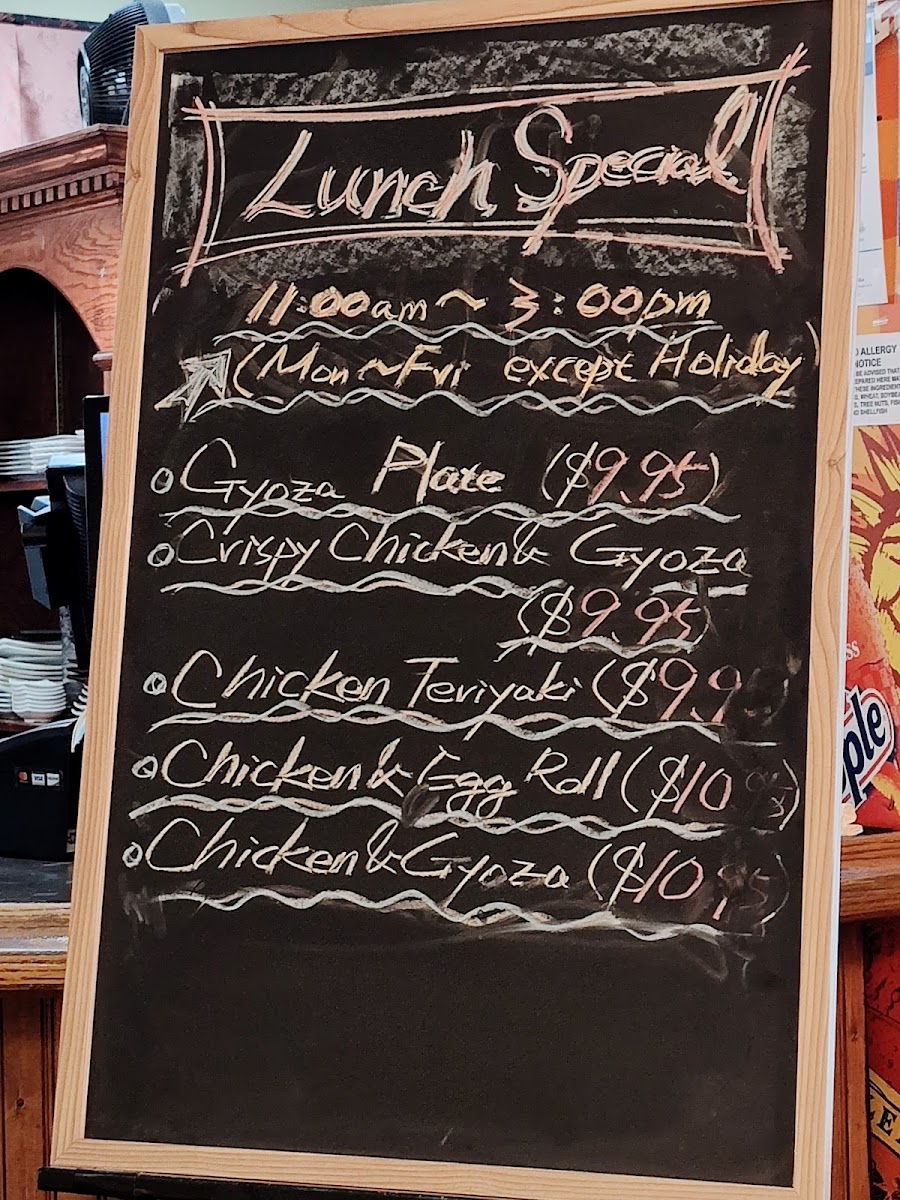 Lunch Special
11:00am ~ 3:00pm
(Mon ~ Fri except Holiday)
Gyoza Plate ($9.95)
Crispy Chicken & Gyoza
($9.95)
Chicken Teriyaki ($9.9
Chicken & Egg Roll ($10.95)
Chicken & Gyoza ($10.95)
ALLERGY
NOTICE
BE ADVISED THAT
THESE INGREDIENT
WHEAT, SOYBEA
TREE NUTS, FISH
SHELLFISH
VISA
ple